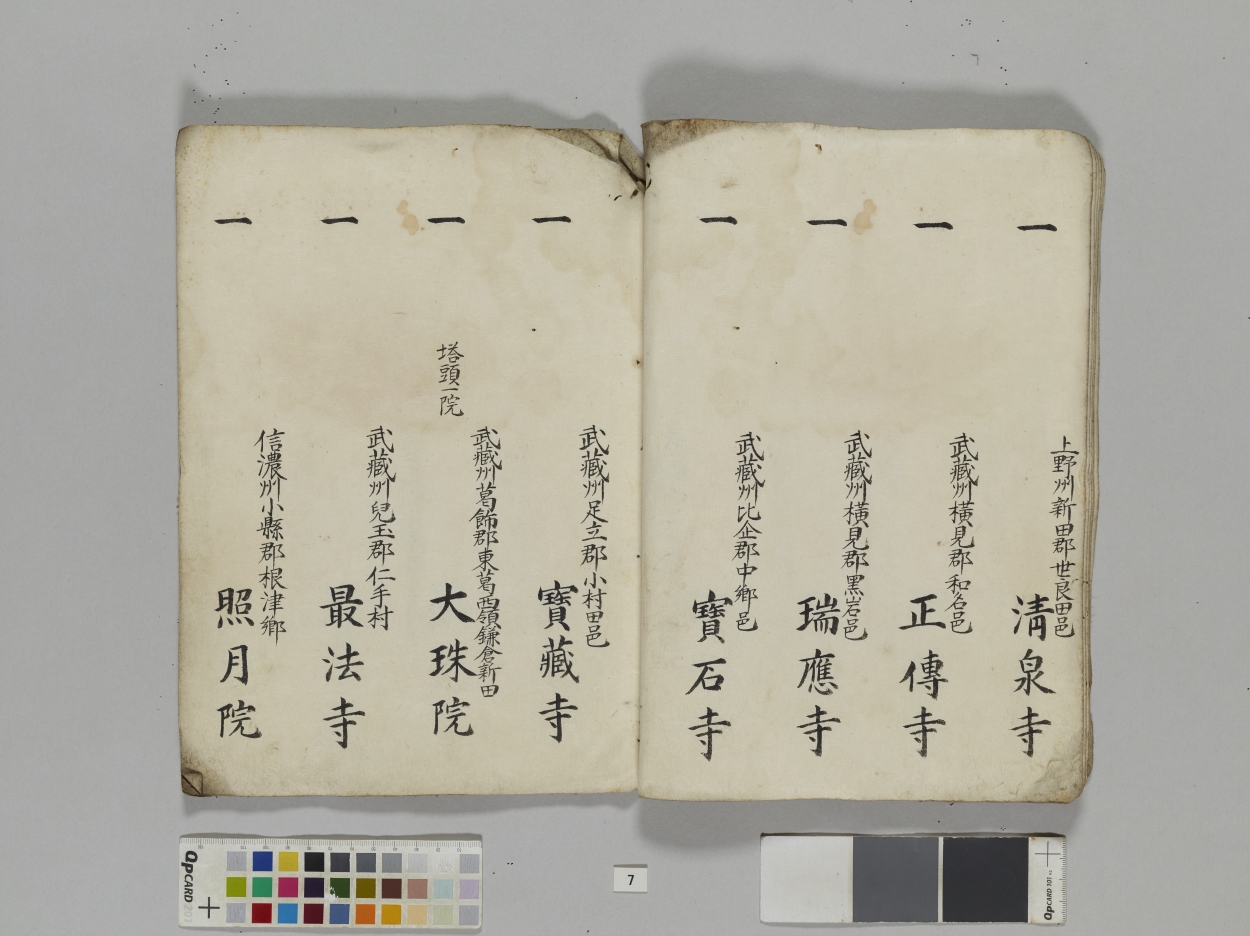 一
上野州新田郡世良田邑
清泉寺
一
武藏州横見郡和名邑
正傳寺
一
武藏州横見郡黑岩邑
瑞應寺
一
武藏州比企郡中鄕邑
寶石寺
一
武藏州足立郡小村田邑
寶藏寺
一
武藏州葛飾郡東葛西領鎌倉新田
塔頭一院
大珠院
一
武藏州兒玉郡仁手村
最法寺
一
信濃州小縣郡根津鄕
照月院
QPCARD 201
7
QPCARD 101